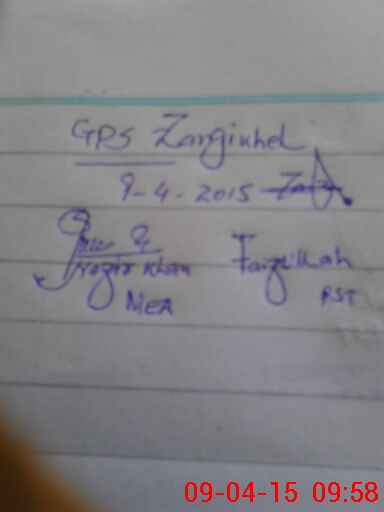 GPS Zangikhel
9-4-2015
Nazir Khan Faizullah
MEA PST
09-04-15 09:58